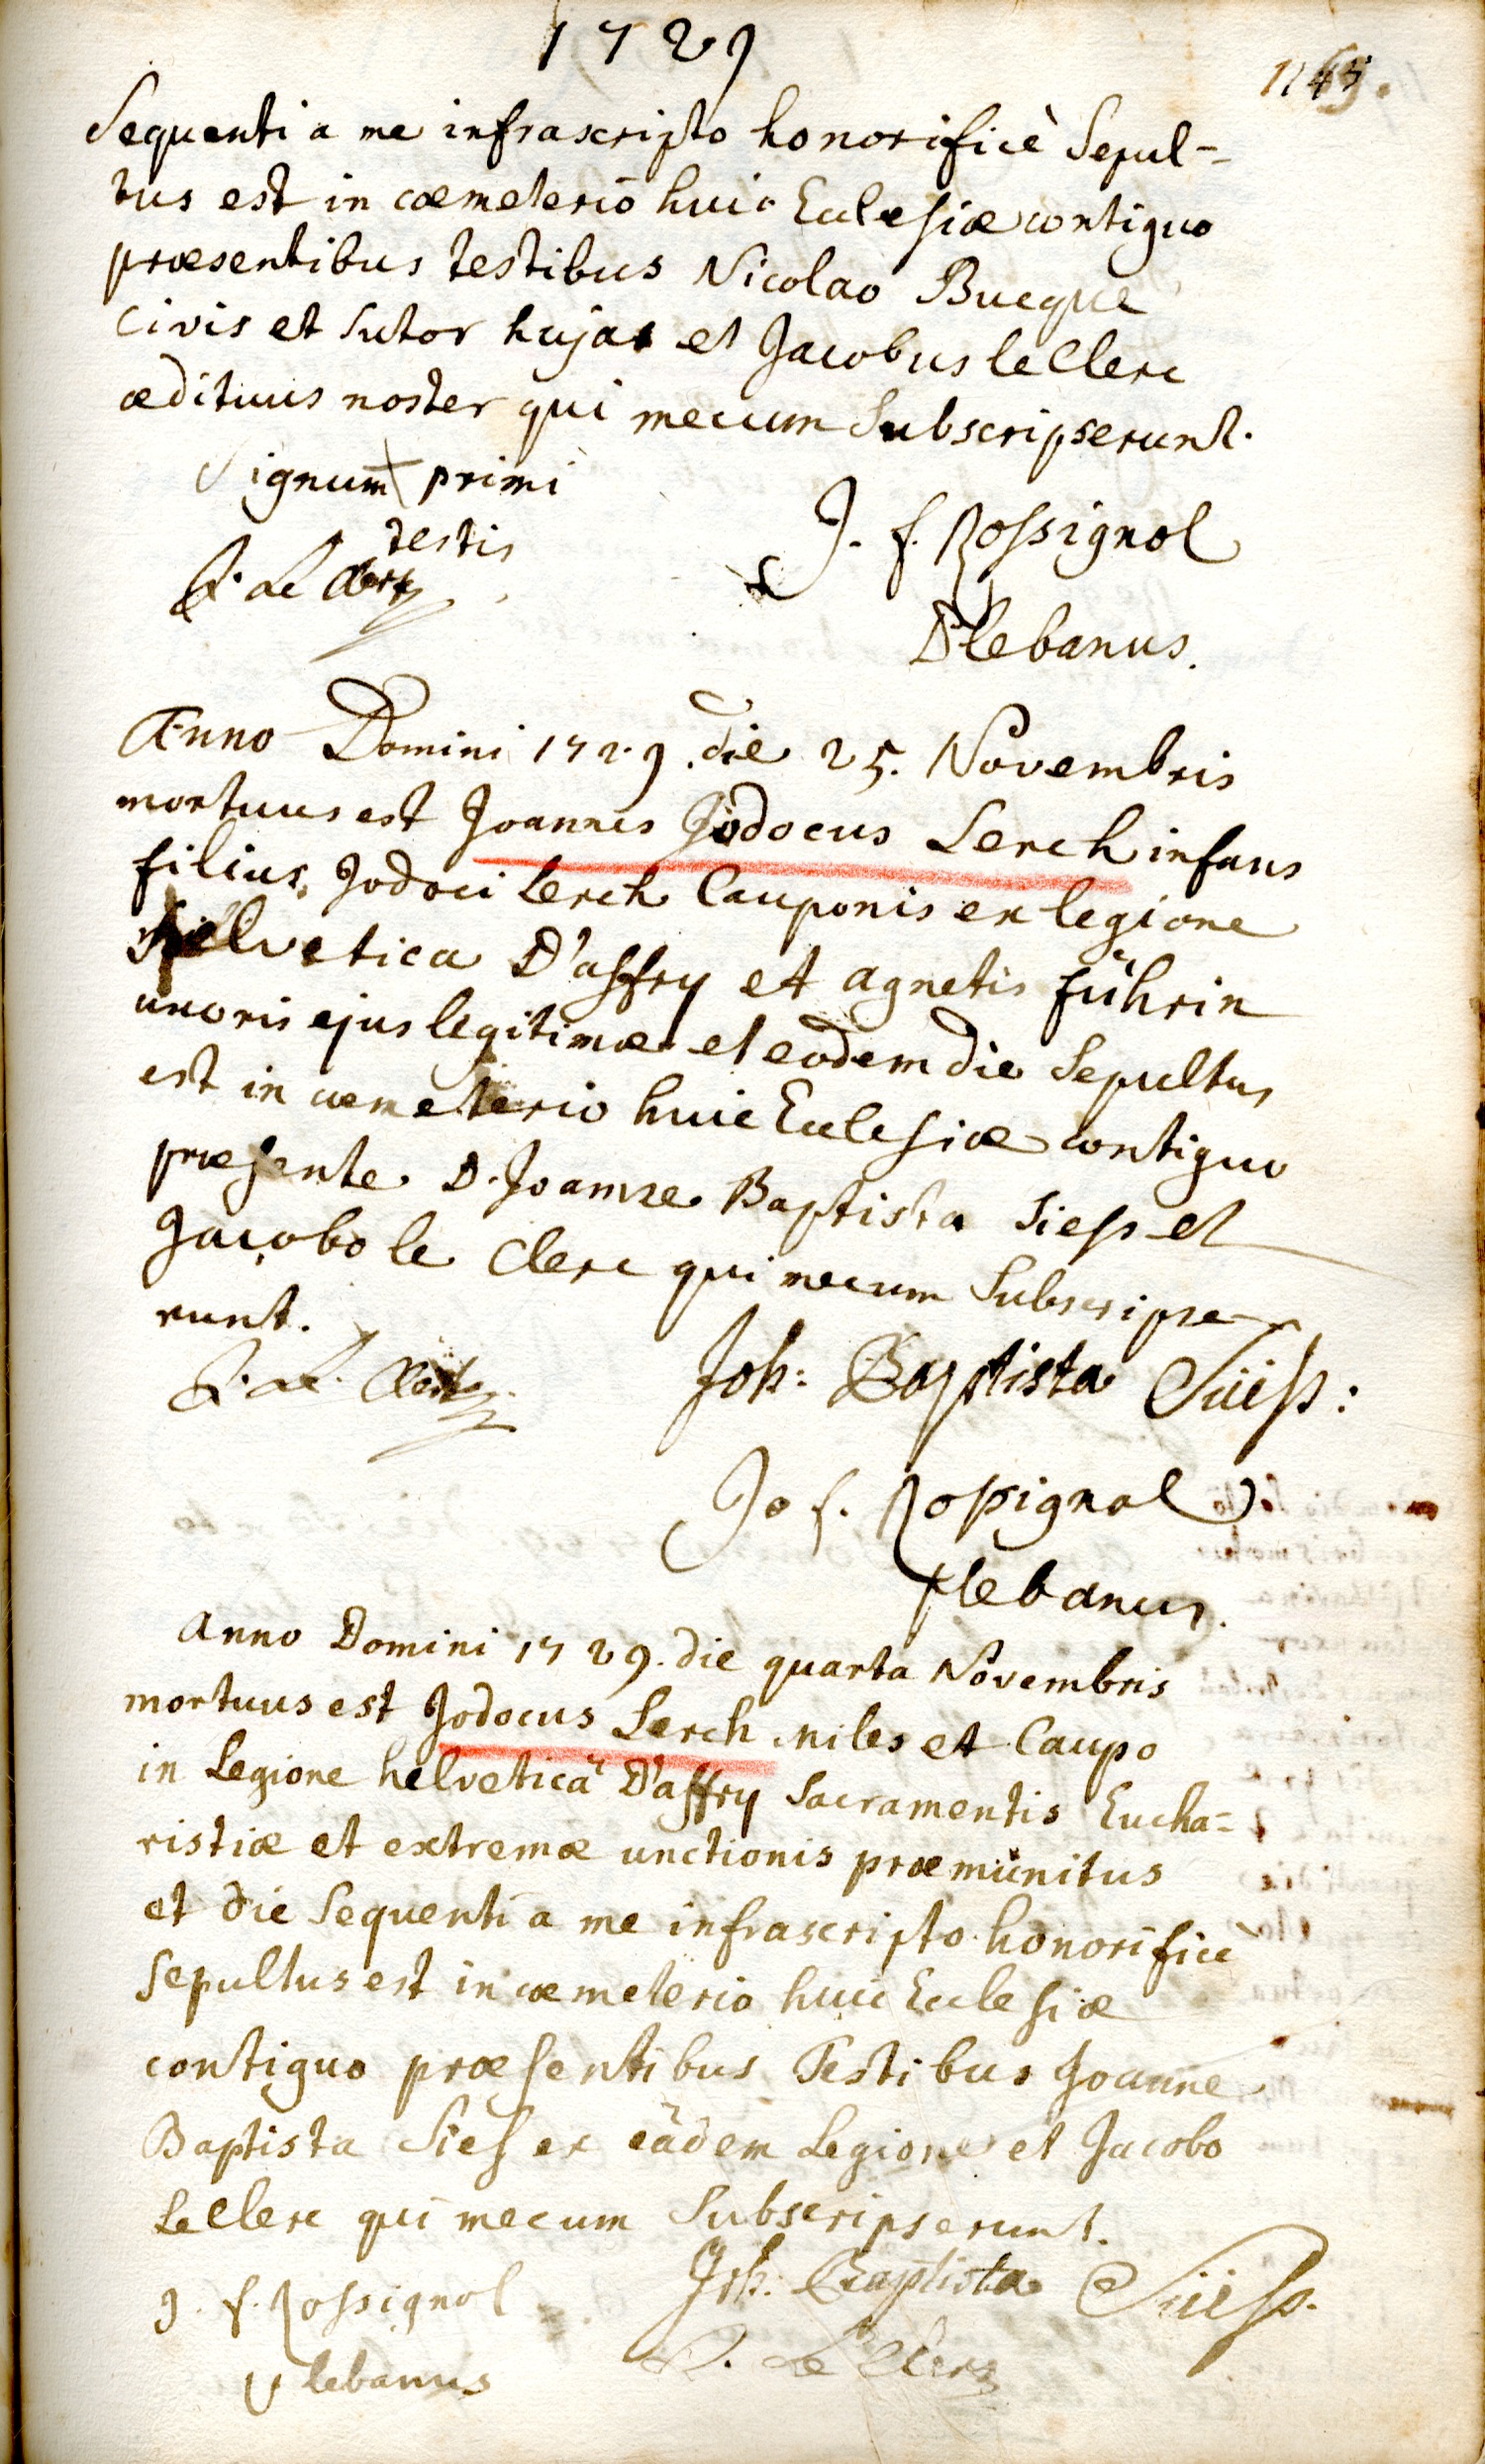 1729
Sequenti a me infrascripto honorificè Sepul-
tus est in cœmeterio huic Ecclesiæ contiguo
præsentibus testibus Nicolao Bucque
civis et Sutor hujas et Jacobus le Clerc
ædituus noster qui mecum Subscripserunt.
Signum primi
testis
J. f. Rossignol
J. Le Clerc
Plebanus.
Anno Domini 1729. die 25. Novembris
mortuus est Joannes Jodocus Lerch infans
filius Jodoci Lerch Cauponis ex legione
helvetica D'affry et agnetis führin
uxoris ejus legitimæ et eodem die Sepultus
est in cœmeterio huic Ecclesiæ contiguo
præsente D. Joanne Baptista Siess et
Jacobo le Clerc qui mecum Subscripse-
runt.
J. Le Clerc
Joh: Baptista Süess:
Jo f. Rossignol
plebanus.
Anno Domini 1729. die quarta Novembris
mortuus est Jodocus Lerch miles et Caupo
in Legione helveticâ D'affry Sacramentis Eucha-
ristiæ et extremæ unctionis præmunitus
et die Sequenti a me infrascripto honorifice
Sepultus est in cœmeterio huic Ecclesiæ
contiguo præsentibus Testibus Joanne
Baptista Sies ex eâdem Legione et Jacobo
Le Clerc qui mecum Subscripserunt.
Joh: Baptista Süess.
J. f. Rossignol
J. Le Clerc
Plebanus